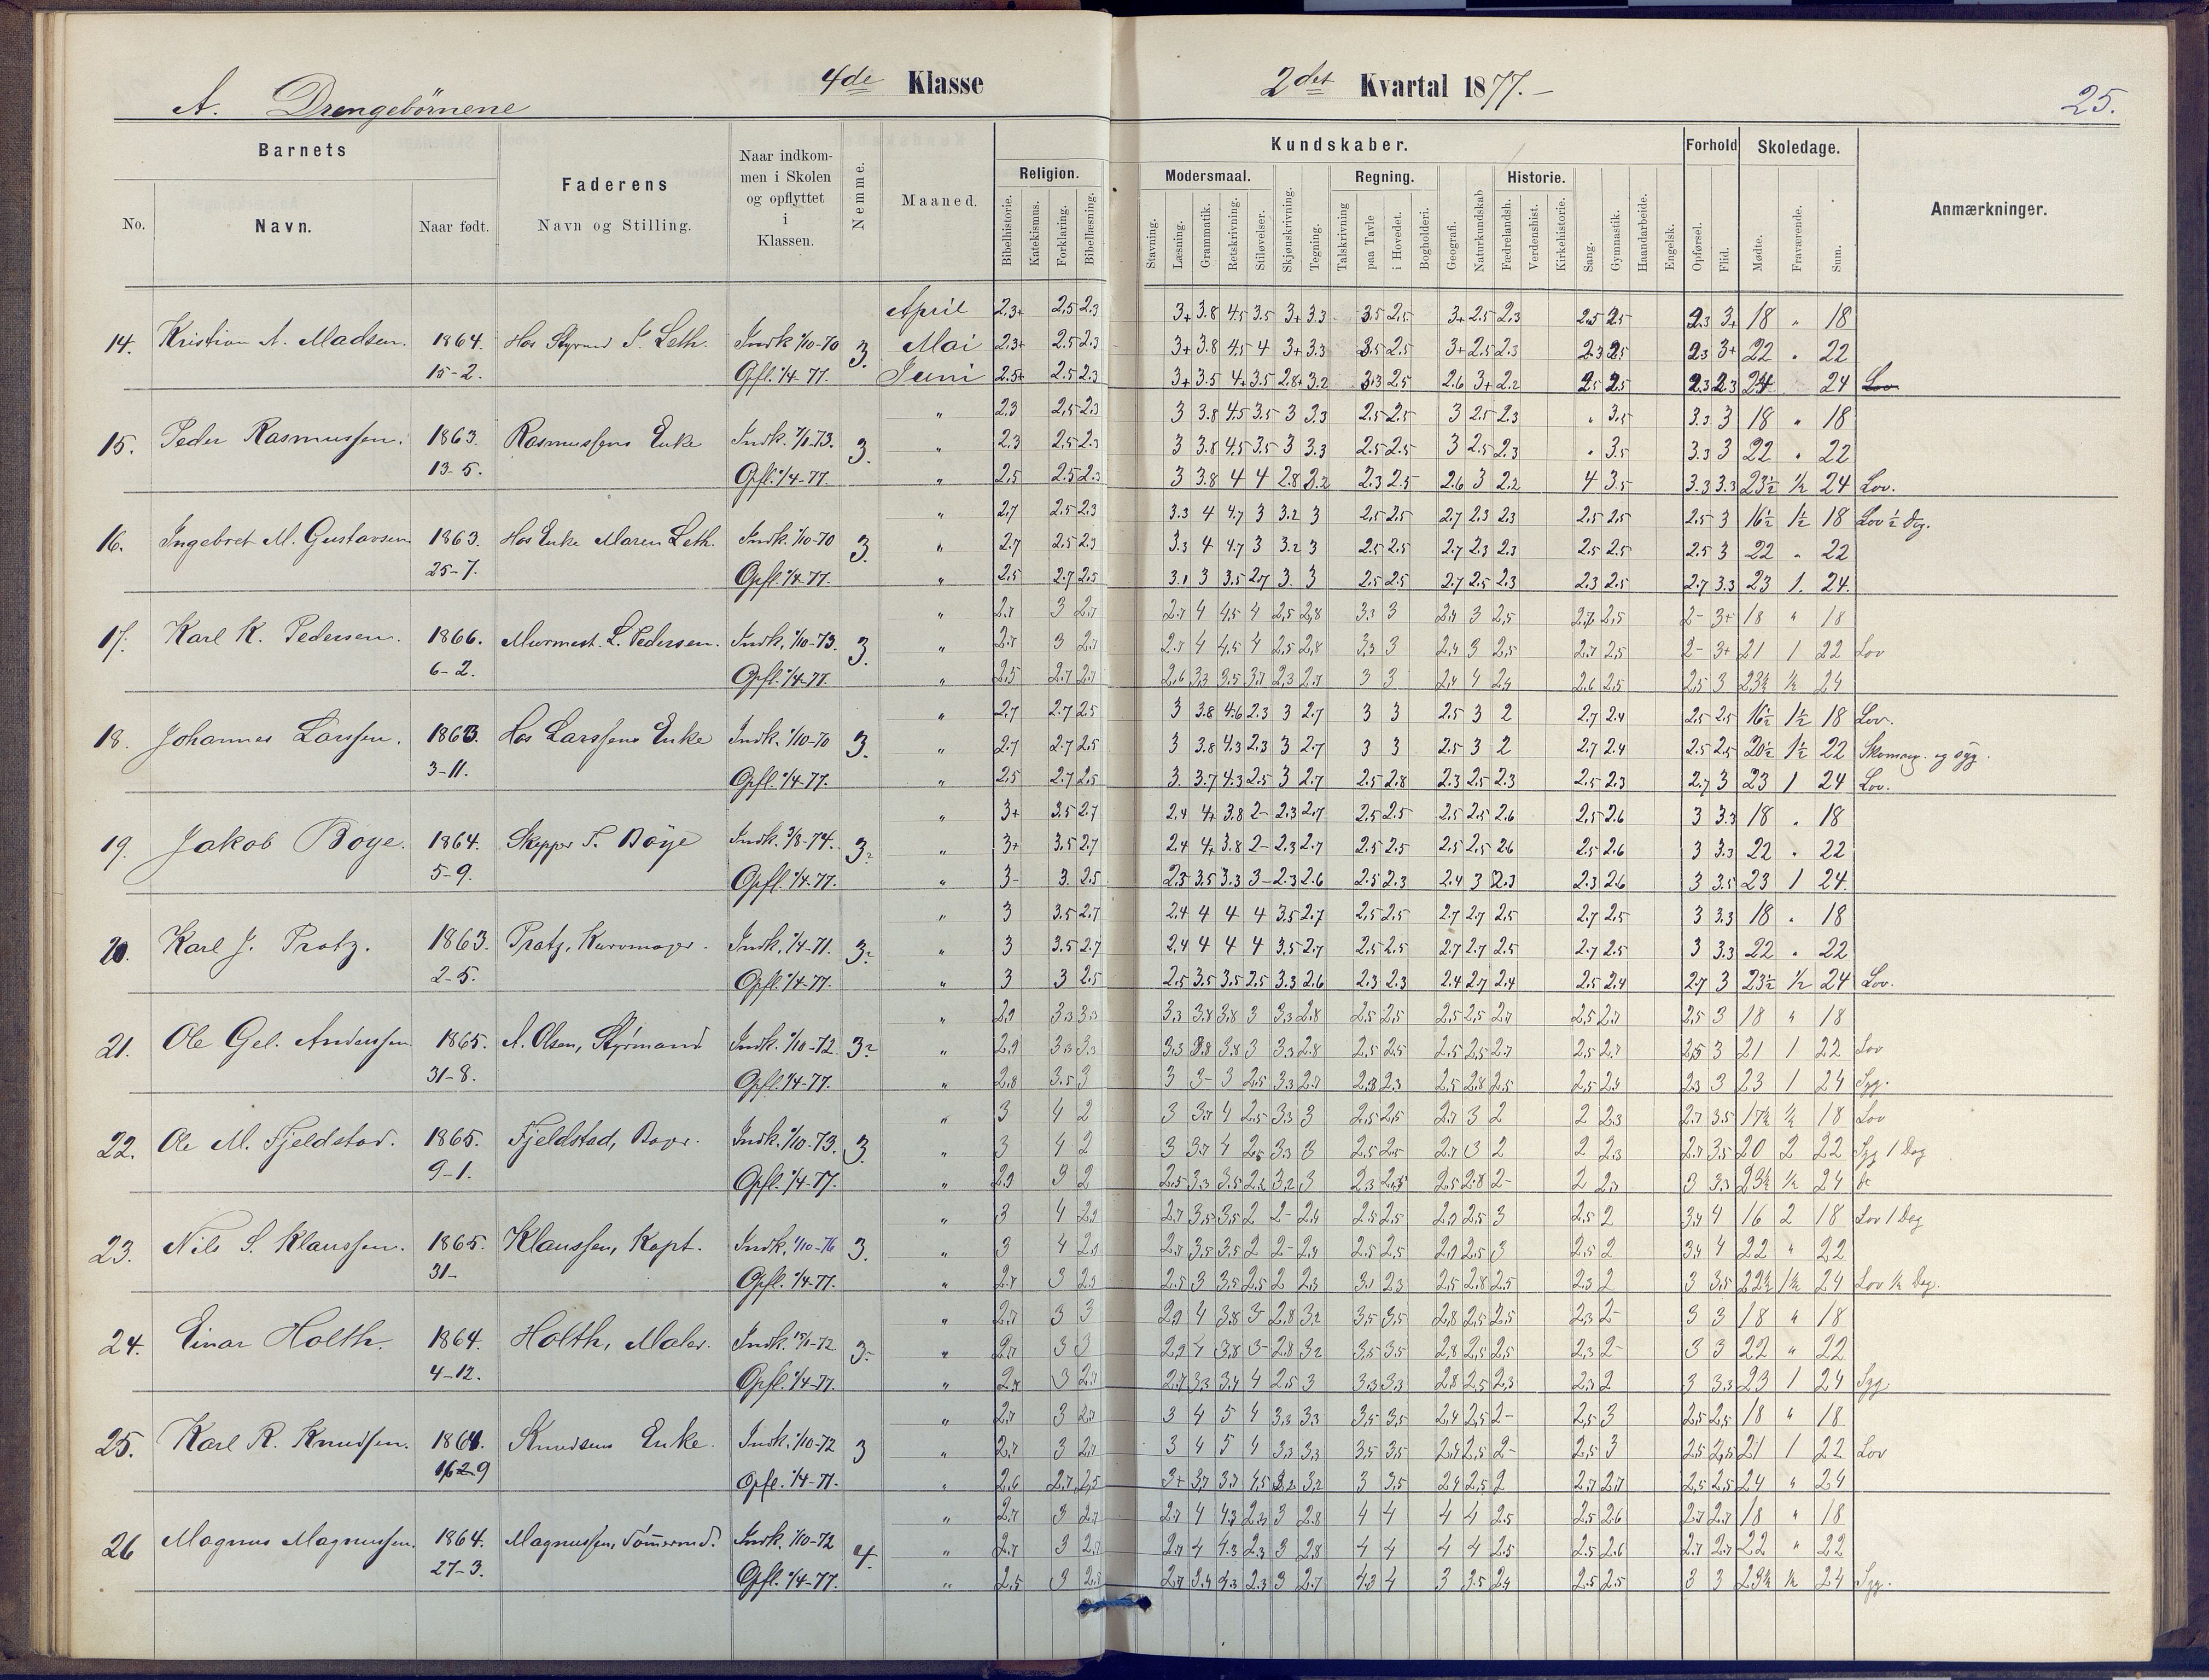 A. Drengebörnene
4de Klasse
2det Kvartal 1877.
25.
Barnets
Faderens
Naar indkommen i Skolen og opflyttet i Klassen.
Nemme.
Maaned.
Kundskaber.
Forhold
Skoledage.
Anmærkninger.
No.
Navn.
Naar født.
Navn og Stilling.
Religion.
Modersmaal.
Regning.
Historie.
Bibelhistorie.
Katekismus.
Forklaring.
Bibellæsning.
Stavning.
Læsning.
Grammatik.
Retskrivning.
Stiløvelser.
Skjønskrivning.
Tegning.
Talskrivning
paa Tavle
i Hovedet.
Bogholderi.
Geografi.
Naturkundskab
Fædrelandsh.
Verdenshist.
Kirkehistorie.
Sang.
Gymnastik.
Haandarbeide.
Engelsk.
Opførsel.
Flid.
Mødte.
Fraværende.
Sum.
April 2.3+ 2.5 2.3 3+ 3.8 4.5 3.5 3+ 3.3 3.5 2.5 3+ 2.5 2.3 2.5 2.5 2.3 3+ 18 " 18
14. Kristian A. Madsen. 1864. Indk. 1/10-70 3. Mai 2.3+ 2.5 2.3 3+ 3.8 4.5 4 3+ 3.3 3.5 2.5 3+ 2.5 2.3 2.3 2.5 2.3 3+ 22 " 22
15-2. Opfl. 1/4-77. Juni 2.5+ 2.5 2.3 3+ 3.5 4+ 3.5 2.8+ 3.2 3.3 2.5 2.6 3+ 2.2 2.5 2.5 2.3 2.3 24 24 Lov
" 2.3 2.5 2.3 3 3.8 4.5 3.5 3 3.3 2.5 2.5 3 2.5 2.3 " 3.5 3.3 3 18 " 18
15. Peder Rasmussen. 1863. Rasmussens Enke 3. " 2.3 2.5 2.3 3 3.8 4.5 3.5 3 3.3 2.5 2.5 3 2.5 2.3 " 3.5 3.3 3 22 " 22
13-5. Opfl. 1/4-77. " 2.5 2.5 2.3 3 3.8 4 4 2.8 3.2 2.3 2.5 2.6 3 2.2 4 3.5 3.3 3.3 23½ ½ 24 Lov.
" 2.7 2.5 2.3 3.3 4 4.7 3 3.2 3 2.5 2.5 2.7 2.3 2.3 2.5 2.5 2.5 3 16½ 1½ 18 Lov ½ dg.
16. Ingebret M. Gustavsen 1863. Hos Enke Maren Leth. Indk. 1/10-70 3. " 2.7 2.5 2.3 3.3 4 4.7 3 3.2 3 2.5 2.5 2.7 2.3 2.3 2.5 2.5 2.5 3 22 " 22
25-7. Opfl. 1/4-77. " 2.5 2.7 2.5 3.1 3 3.5 2.7 3. 3 2.5 2.5 2.7 2.5 2.3 2.3 2.5 2.7 3.3 23 1. 24.
" 2.7 3 2.7 2.7 4 4.5 4 2.5 2.8 3.3 3 2.4 3 2.5 2.7 2.5 2- 3+ 18 " 18
17. Karl K. Pedersen. 1866. Murmest. L. Pedersen. Indk. 1/10-73. 3. " 2.7 3 2.7 2.7 4 4.5 4 2.5 2.8 3.3 3 2.4 3 2.5 2.7 2.5 2- 3+ 21 1 22 Lov
6-2. Opfl. 1/4-77. " 2.5 2.7 2.7 2.6 3.3 3.5 3.7 2.3 2.7 3 3 2.4 4 2.4 2.6 2.5 2.5 3 23½ ½ 24
" 2.7 2.7 2.5 3 3.8 4.6 2.3 3 2.7 3 3 2.5 3 2 2.7 2.4 2.5 2.5 16½ 1½ 18 Lov.
18. Johannes Larssen. 1863. Hos Larssens Enke Indk. 1/10-70 3. " 2.7 2.7 2.5 3 3.8 4.3 2.3 3 2.7 3 3 2.5 3 2 2.7 2.4 2.5 2.5 20½ 1½ 22 og syg.
3-11. Opfl. 1/4-77. " 2.5 2.7 2.5 3. 3.7 4.3 2.5 3 2.7 2.5 2.8 2.3 2.5 2.3 2.5 2.3 2.7 3 23 1 24 Lov.
" 3+ 3.5 2.7 2.4 4+ 3.8 2- 2.3 2.7 2.5 2.5 2.5 2.5 2.6 2.5 2.6 3 3.3 18 " 18
19. Jakob Böye. 1864. Böye Indk. 3/8-74. 3. " 3+ 3.5 2.7 2.4 4+ 3.8 2- 2.3 2.7 2.5 2.5 2.5 2.5 2.6 2.5 2.6 3 3.3 22 " 22
5-9. Opfl. 1/4-77. " 3- 3. 2.5 2.3 3.5 3.3 3- 2.3 2.6 2.5 2.3 2.4 3 2.3 2.3 2.6 3 3.5 23 1 24.
" 3 3.5 2.7 2.4 4 4 4 3.5 2.7 2.5 2.5 2.7 2.7 2.5 2.7 2.5 3 3.3 18 " 18
20. Karl J. Pratz. 1863. Pratz, Kurvmager. Indk. 1/4-71. 3. " 3 3.5 2.7 2.4 4 4 4 3.5 2.7 2.5 2.5 2.7 2.7 2.5 2.7 2.5 3 3.3 22 " 22
2-5. Opfl. 1/4-77. " 3 3 2.5 2.5 3.5 3.5 2.5 3.3 2.6 2.3 2.3 2.4 2.7 2.4 2.5 2.4 2.7 3 23½ ½ 24 Lov.
" 2.9 3.3 3.3 3.3 3.8 3.8 3 3.3 2.8 2.5 2.5 2.5 2.5 2.7 2.5 2.7 2.5 3 18 " 18
21. Ole Gel. Anderssen 1865. A. Olsen, Styrmand Indk. 1/10-72. 3. " 2.9 3.3 3.3 3.3 3.8 3.8 3 3.3 2.8 2.5 2.5 2.5 2.5 2.7 2.5 2.7 2.5 3 21 1 22 Lov
31-8. Opfl. 1/4-77. " 2.8 3.5 3 3 3- 3 2.5 3.3 2.7 2.3 2.3 2.5 2.8 2.5 2.5 2.4 2.3 3 23 1 24 Syg.
" 3 4 2 3 3.7 4 2.5 3.3 3 2.5 2.5 2.7 3 2 2 2.3 2.7 3.5 17½ ½ 18 Lov
22. Ole M. Fjeldstad. 1865. Fjeldstad, Indk. 1/10-73. 3. " 3 4 2 3 3.7 4 2.5 3.3 3 2.5 2.5 2.7 3 2 2 2.3 2.7 3.5 20 2 22 Syg 1 Dag
9-1. Opfl. 1/4-77. " 2.9 3 2 2.5 3.3 3.5 2.2 3.2 3 2.3 2.3 2.5 2.8 2- 2 2.3 3 3.3 23½ ½ 24
" 3 4 2.9 2.7 3.5 3.5 2 2- 2.4 2.5 2.5 2.9 2.5 3 2.5 2 3.4 4 16 2 18 Lov 1 Dag
23. Nils S. Klaussen. 1865. Klaussen, Kapt. Indk. 1/10-76 3. " 3 4 2.9 2.7 3.5 3.5 2 2- 2.4 2.5 2.5 2.9 2.5 3 2.5 2 3.4 4 22 " 22
31- Opfl. 1/4-77. " 2.7 3 2.3 2.5 3 3.5 2.5 2 2.3 3.1 2.3 2.5 2.8 2.5 2.3 2 3 3.5 22½ 1½ 24 Lov ½ Dag.
" 2.7 3 3 2.9 4 3.8 3- 2.8 3.2 3.5 3.5 2.8 2.5 2.5 2.3 2- 3 3 18 " 18
24. Einar Holth. 1864. Holth, Maler. Indk. 15/1-72. 3. " 2.7 3 3 2.9 4 3.8 3- 2.8 3.2 3.5 3.5 2.8 2.5 2.5 2.3 2- 3 3 22 " 22
4-12. Opfl. 1/4-77. " 2.7 3 2.7 2.7 3.3 3.4 4 2.5 3 3.3 3.3 2.8 2.5 2.3 2.3 2 3 3.3 23 1 24 Syg
" 2.7 3 2.7 3 4 5 4 3.3 3.3 3.5 3.5 2.4 2.5 2- 2.5 3 2.5 2.5 18 " 18
25. Karl R. Knudsen. Knudsens Enke. Indk. 1/10-72 3 " 2.7 3 2.7 3 4 5 4 3.3 3.3 3.5 3.5 2.4 2.5 2- 2.5 3 2.5 2.5 21 1 22 Lov
Opfl. 1/4-77. " 2.6 2.7 2.5 3+ 3.7 3.7 4.5 3.2 3.2 3 3.5 2.4 2.5 2 2.7 2.7 2.5 2.5 24 " 24
" 2.7 3 2.7 2.7 4 4.3 2.3 3 2.8 4 4 4 4 2.5 2.5 2.6 2.7 2.7 18 " 18
26 Magnus Magnussen. 1864. Magnussen, Tömermd. Indk. 1/10-72 4. " 2.7 3 2.7 2.7 4 4.3 2.3 3 2.8 4 4 4 4 2.5 2.5 2.6 2.7 2.7 22 " 22
27-3. Opfl. 1/4-77. " 2.5 3 2.5 2.7 3.4 4.3 2.3 3 2.7 4.3 4 3 3.5 2.4 2.5 2.5 3 3 23½ ½ 24 Syg.